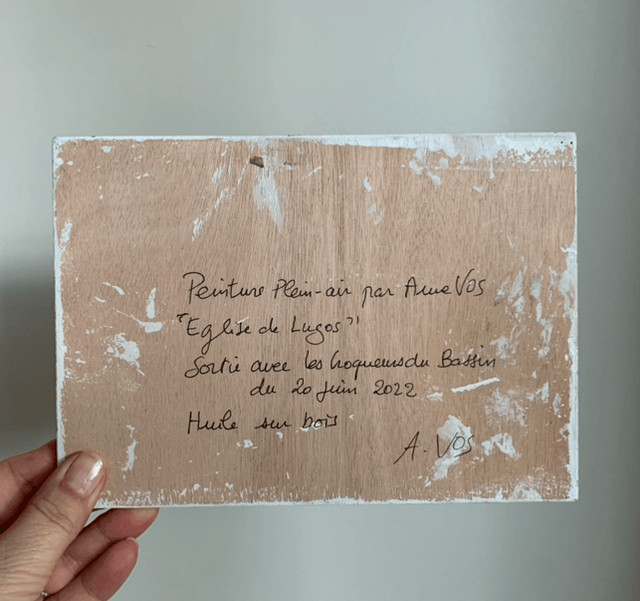 Peinture Plein-air par Anne VOS
"Eglise de Lugos"
Sortie avec les Croqueurs du Bassin
du 20 juin 2022
Huile sur bois
A. VOS